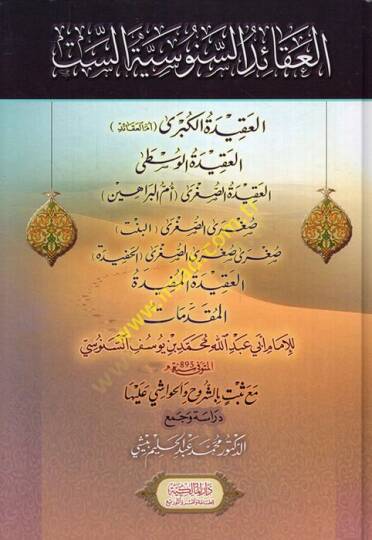 العقائد السنوسية الست
العقيدة الكبرى (أم العقائد)
العقيدة الوسطى
العقيدة الصغرى (أم البراهين)
صغرى الصغرى (البنت)
صغرى صغرى الصغرى (الحفيدة)
العقيدة المفيدة
المقدمات
للإمام أبي عبد الله محمد بن يوسف السنوسي
المتوفى سنة 895 هـ
مع ثبت بالشروح والحواشي عليها
دراسة وجمع
الدكتور محمد عبد الحليم بيشي
دار المالكية
للطباعة والنشر والتوزيع